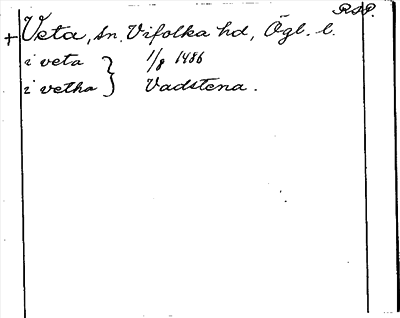 RAP.
+ Veta, sn. Vifolka hd, Ögl. l.
i veta } 1/8 1486
i vetha } Vadstena.